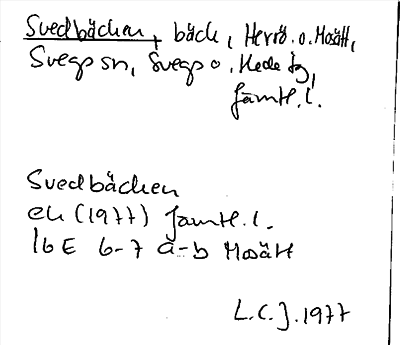 Svedbäcken, bäck, Herrö o. Mosätt,
Svegs sn, Svegs o. Hede tg,
Jämtl. l.
Svedbäcken
ek (1977) Jämtl. l.
16 E 6-7 a-b Mosätt
L.C.J. 1977